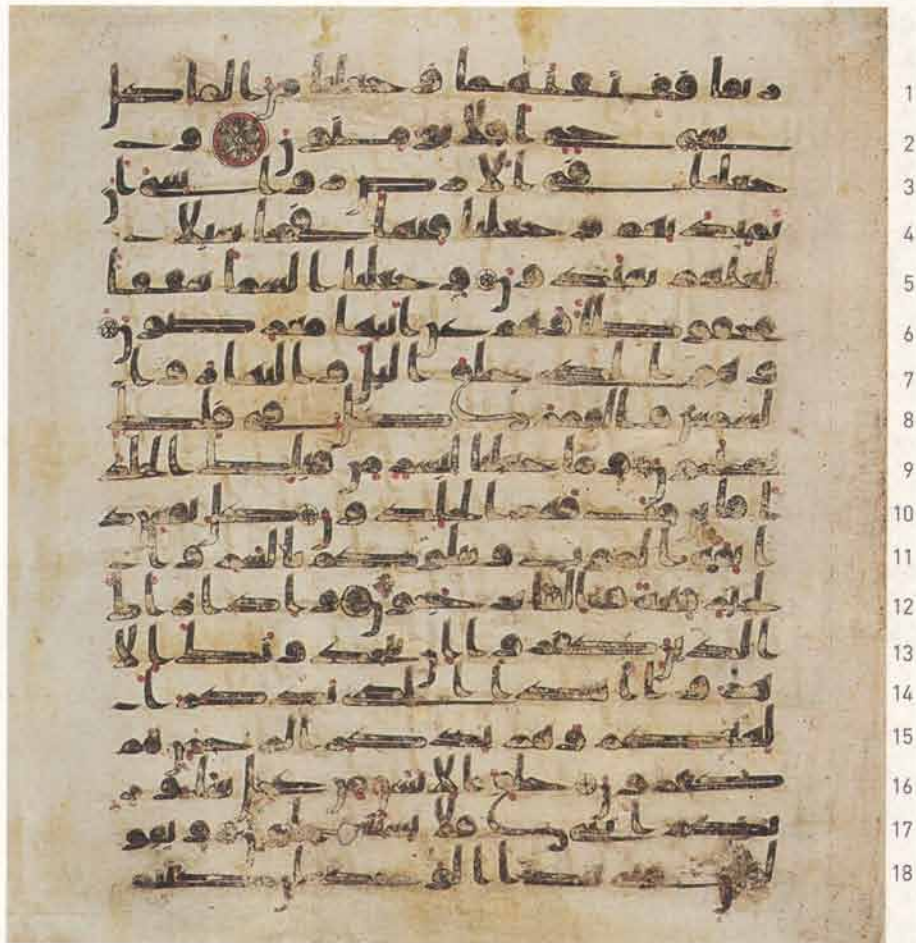 رتقا ففتقنهما وجعلنا من الما كل 1
شي حي افلا يومنون و 2
جعلنا في الارض روسي ان 3
تميد بهم وجعلنا فيها فجاجا سبلا 4
لعلهم يهتدون وجعلنا السما سقفا 5
محفوظا وهم عن ايتها معرضون 6
وهو الذي خلق اليل والنهار وا 7
لشمس والقمر كل في فلك 8
يسبحون وما جعلنا لبشر من قبلك الخلد 9
افاين مت فهم الخلدون كل نفس ذ 10
ايقة الموت ونبلوكم بالشر وا 11
لخير فتنة والينا ترجعون واذا راك 12
الذين كفروا ان يتخذونك الا 13
هزوا اهذا الذي يذكر ا 14
لهتكم وهم بذكر الرحمن هم 15
كفرون خلق الانسن من عجل ساوريكم 16
ايتي فلا تستعجلون ويقو 17
لون متى هذا الوعد ان كنتم 18